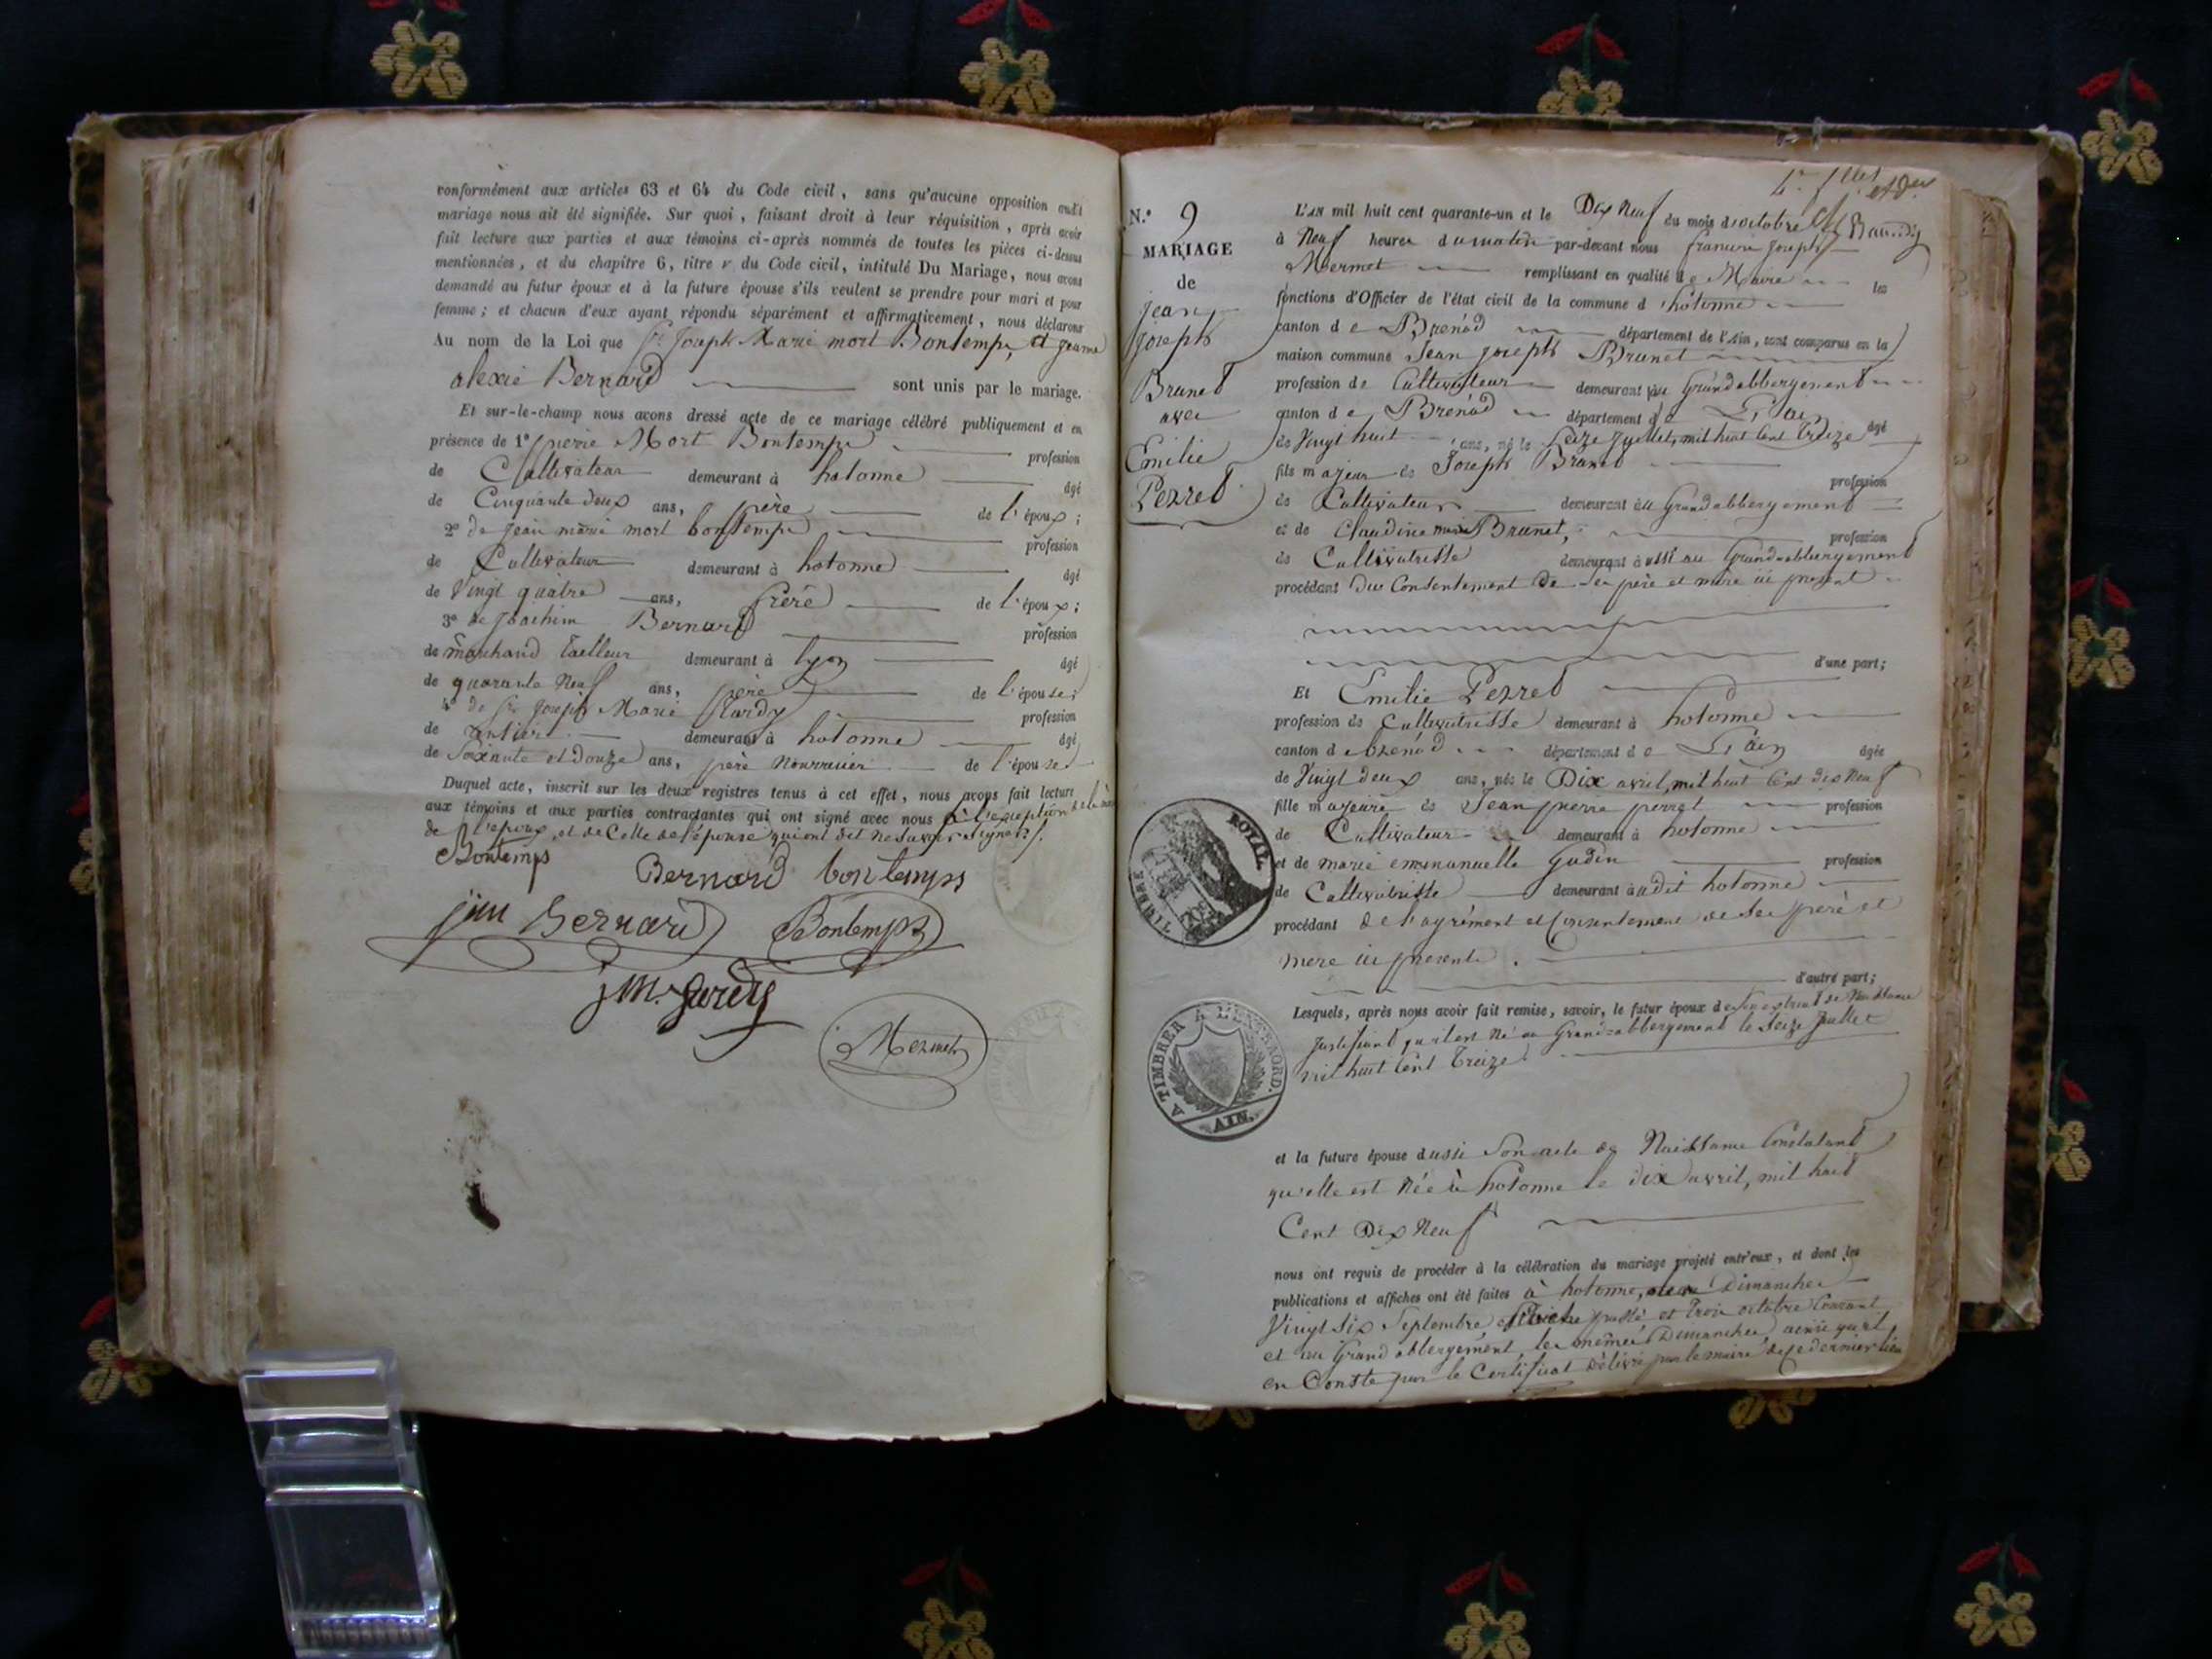 conformément aux articles 63 et 64 du Code civil, sans qu'aucune opposition audit
mariage nous ait été signifiée. Sur quoi, faisant droit à leur réquisition, après avoir
fait lecture aux parties et aux témoins ci-après nommés de toutes les pièces ci-dessus
mentionnées, et du chapitre 6, titre v du Code civil, intitulé Du Mariage, nous avons
demandé au futur époux et à la future épouse s'ils veulent se prendre pour mari et pour
femme; et chacun d'eux ayant répondu séparément et affirmativement, nous déclarons
Au nom de la Loi que Joseph Marie mort Bontemps, et jeanne
alexie Bernard sont unis par le mariage.
Et sur-le-champ nous avons dressé acte de ce mariage célébré publiquement et en
présence de 1º Mort Bontemps profession
de Cultivateur demeurant à hotonne âgé
de Cinquante deux ans, père de l'époux;
2º de jean marie mort bontemps profession
de Cultivateur demeurant à hotonne âgé
de Vingt quatre ans, frère de l'époux;
3º de Joachim Bernard profession
de marchand tailleur demeurant à lyon âgé
de quarante Neuf ans, père de l'épouse;
4º de Joseph Marie profession
de rentier demeurant à hotonne âgé
de Soixante et douze ans, père nourricier de l'épouse
Duquel acte, inscrit sur les deux registres tenus à cet effet, nous avons fait lecture
aux témoins et aux parties contractantes qui ont signé avec nous à l'exception de la mère
de l'époux, et de Celle de l'épouse qui ont dit ne savoir signer
Bontemps
Bernard bontemps
Bernard Bontemps
j M.
Mermet
N.º 9
MARIAGE
de
jean
joseph
Brunet
avec
Emilie
Perret
L'AN mil huit cent quarante-un et le Dix Neuf du mois d'octobre
à Neuf heures du matin par-devant nous françois joseph
Mermet remplissant en qualité de Maire les
fonctions d'Officier de l'état civil de la commune d'hotonne
canton de Brénod département de l'Ain, sont comparus en la
maison commune Jean joseph Brunet
profession de Cultivateur demeurant au Grand abbergement
canton de Brénod département de L'ain âgé
de Vingt huit ans, né le Seize juillet, mil huit Cent Treize
fils majeur de Joseph Brunet profession
de Cultivateur demeurant au Grand abbergement
et de Claudine Brunet, profession
de Cultivatrisse demeurant à aussi au Grand abbergement
procédant du Consentement de ses père et mère ici present
d'une part;
Et Emilie Perret
profession de Cultivatrisse demeurant à hotonne
canton de brénod département de L'ain âgée
de Vingt deux ans, née le Dix avril, mil huit Cent dix Neuf
fille majeure de Jean pierre perret profession
de Cultivateur demeurant à hotonne
et de marie emmanuelle Godin profession
de Cultivatrisse demeurant audit hotonne
procédant de l'agrément et Consentement de ses père et
mere ici presents.
d'autre part;
Lesquels, après nous avoir fait remise, savoir, le futur époux de son extrait de Naissance
justifiant qu'il est Né au Grand abbergement le Seize juillet
mil huit Cent Treize
et la future épouse aussi Son acte de Naissance Constatant
qu'elle est Née à hotonne le dix avril, mil huit
Cent Dix Neuf
nous ont requis de procéder à la célébration du mariage projeté entr'eux, et dont les
publications et affiches ont été faites à hotonne, les Dimanches
Vingt Six Septembre passé et Trois octobre Courant
et au Grand abbergement, les mêmes Dimanches, ainsi qu'il
en Conste par le Certificat Délivré par le maire de ce dernier lieu
TIMBRE ROYAL
A TIMBRER A L'EXTRAORD.
AIN.